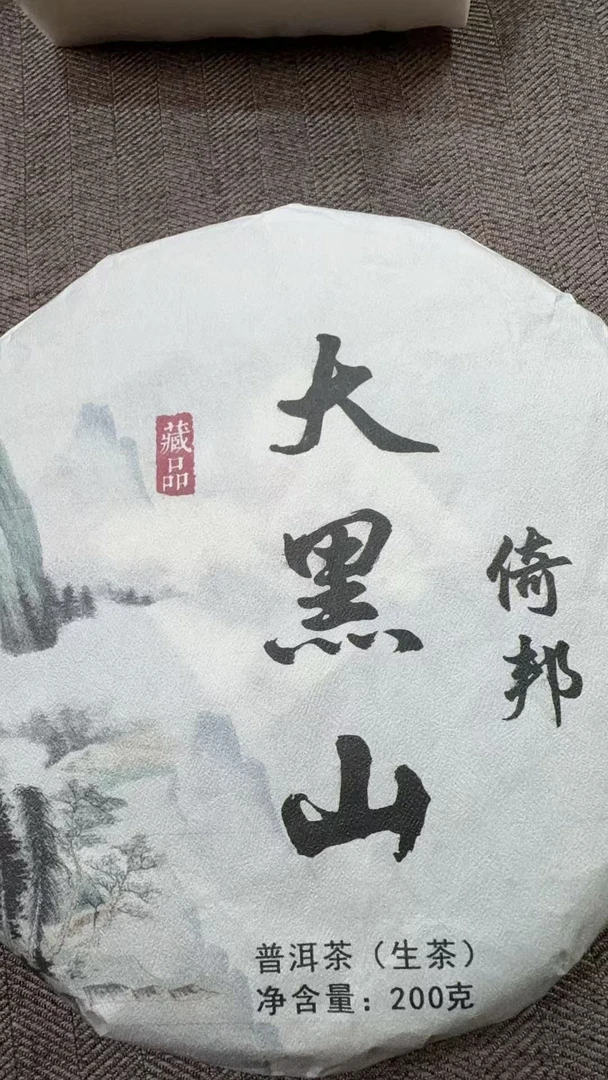 倚邦
大黑山
藏品
普洱茶（生茶）
净含量：200克